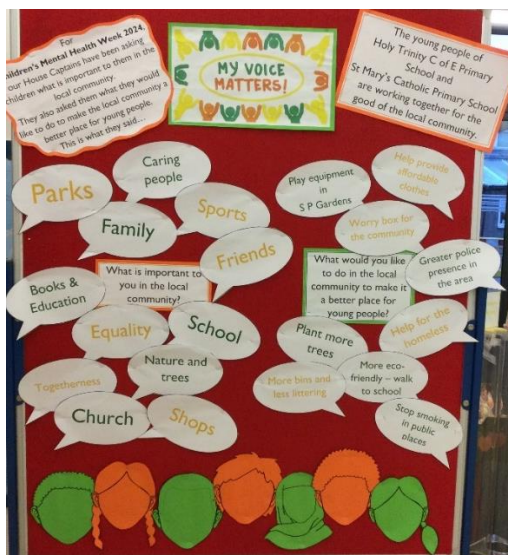 For
Children's Mental Health Week 2024,
our House Captains have been asking
children what is important to them in the
local community.
They also asked them what they would
like to do to make the local community a
better place for young people.
This is what they said…
MY VOICE
MATTERS!
The young people of
Holy Trinity C of E Primary
School and
St Mary's Catholic Primary School
are working together for the
good of the local community.
Parks
Caring
people
Family
Sports
Friends
Books &
Education
What is important to
you in the local
community?
Equality
School
Nature and
trees
Togetherness
Church
Shops
Play equipment
in
S P Gardens
Help provide
affordable
clothes
Worry box for
the community
What would you like
to do in the local
community to make it
a better place for
young people?
Greater police
presence in
the area
Plant more
trees
Help for the
homeless
More bins and
less littering
More eco-
friendly – walk
to school
Stop smoking
in public
places